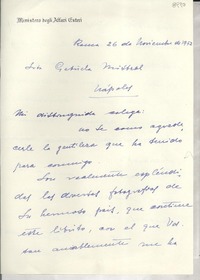 Ministero degli Affari Esteri
Roma 26 de Noviembre de 1952
Sra Gabriela Mistral
Nápoles
Mi distinguida colega:
no se como agrade-
cerle la gentileza que ha tenido
para conmigo.
Son realmente espléndi-
das las diversas fotografías de
Su hermoso país, que contiene
este librito, con el que Vd.
tan amablemente me ha